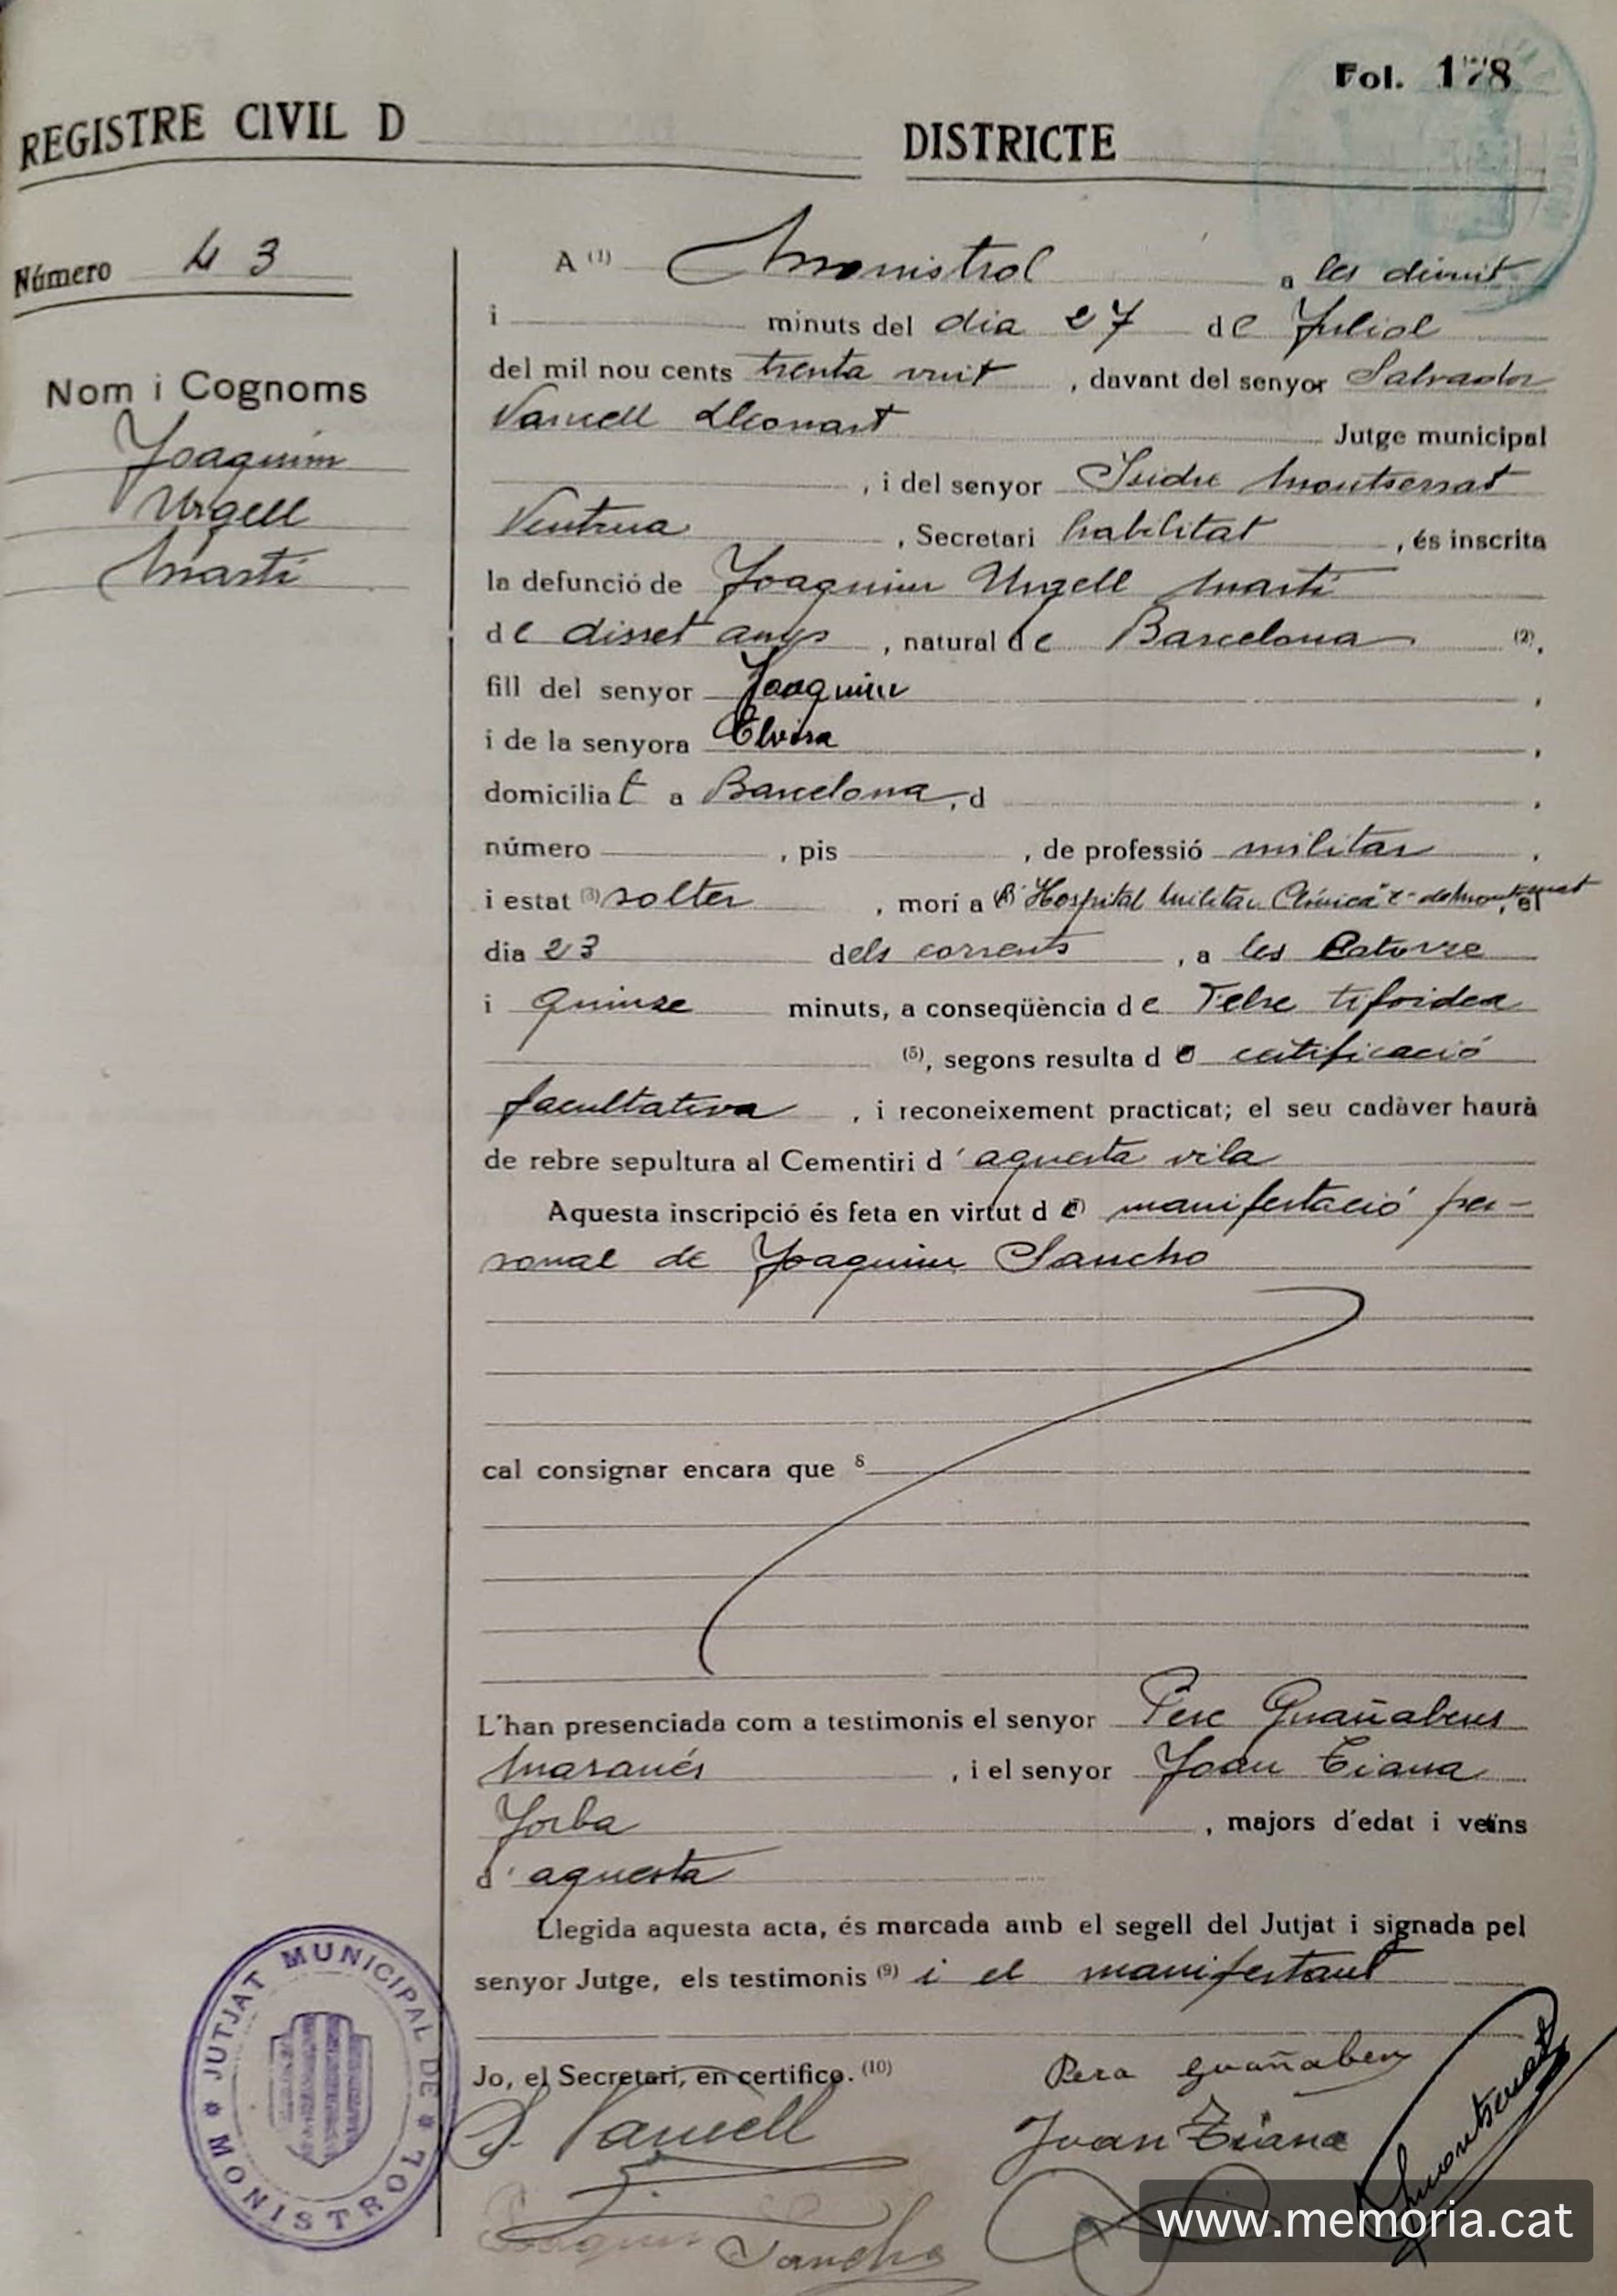 Fol. 178
REGISTRE CIVIL D DISTRICTE
Número 43
Nom i Cognoms
Joaquim
Urgell
Martí
A (1) Monistrol a les divuit
i minuts del dia 27 de Juliol
del mil nou cents trenta vuit , davant del senyor Salvador
Vancell Lleonart Jutge municipal
, i del senyor Isidre Montserrat
Ventura , Secretari habilitat , és inscrita
la defunció de Joaquim Urgell Martí
de disset anys , natural de Barcelona (2),
fill del senyor Joaquim ,
i de la senyora Elvira ,
domiciliat a Barcelona, d ,
número , pis , de professió militar ,
i estat (3) solter , morí a Hospital Militar Clínica "Z" de Montserrat, el
dia 23 dels corrents , a les Catorze
i quinze minuts, a conseqüència de Febre tifoidea
(5), segons resulta de certificació
facultativa , i reconeixement practicat; el seu cadàver haurà
de rebre sepultura al Cementiri d'aquesta vila
Aquesta inscripció és feta en virtut de manifestació per-
sonal de Joaquim Sancho
cal consignar encara que 8
L'han presenciada com a testimonis el senyor Pere Guañabens
Maranés , i el senyor Joan Tiana
Jorba , majors d'edat i veïns
d'aquesta
Llegida aquesta acta, és marcada amb el segell del Jutjat i signada pel
senyor Jutge, els testimonis (9) i el manifestant
Jo, el Secretari, en certifico. (10)
Pera Guañabens
S. Vancell
Joan Tiana
Montserrat
Joaquim Sancho
JUTJAT MUNICIPAL DE MONISTROL
www.memoria.cat